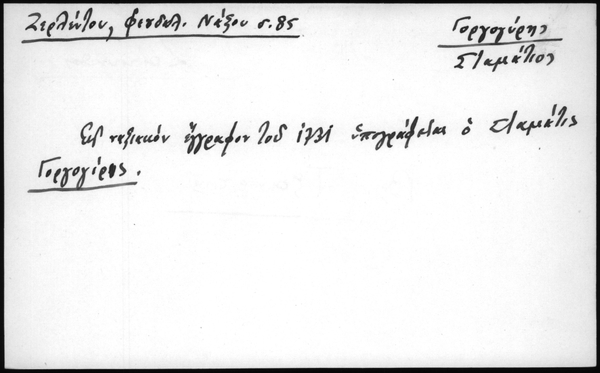 Ζερλέντου, φεουδαλ. Νάξου σ. 85
Γοργογύρης
Σταμάτιος
Εἰς ναξιακὸν ἔγγραφον τοῦ 1731 ὑπογράφεται ὁ Σταμάτις
Γοργογύρης.